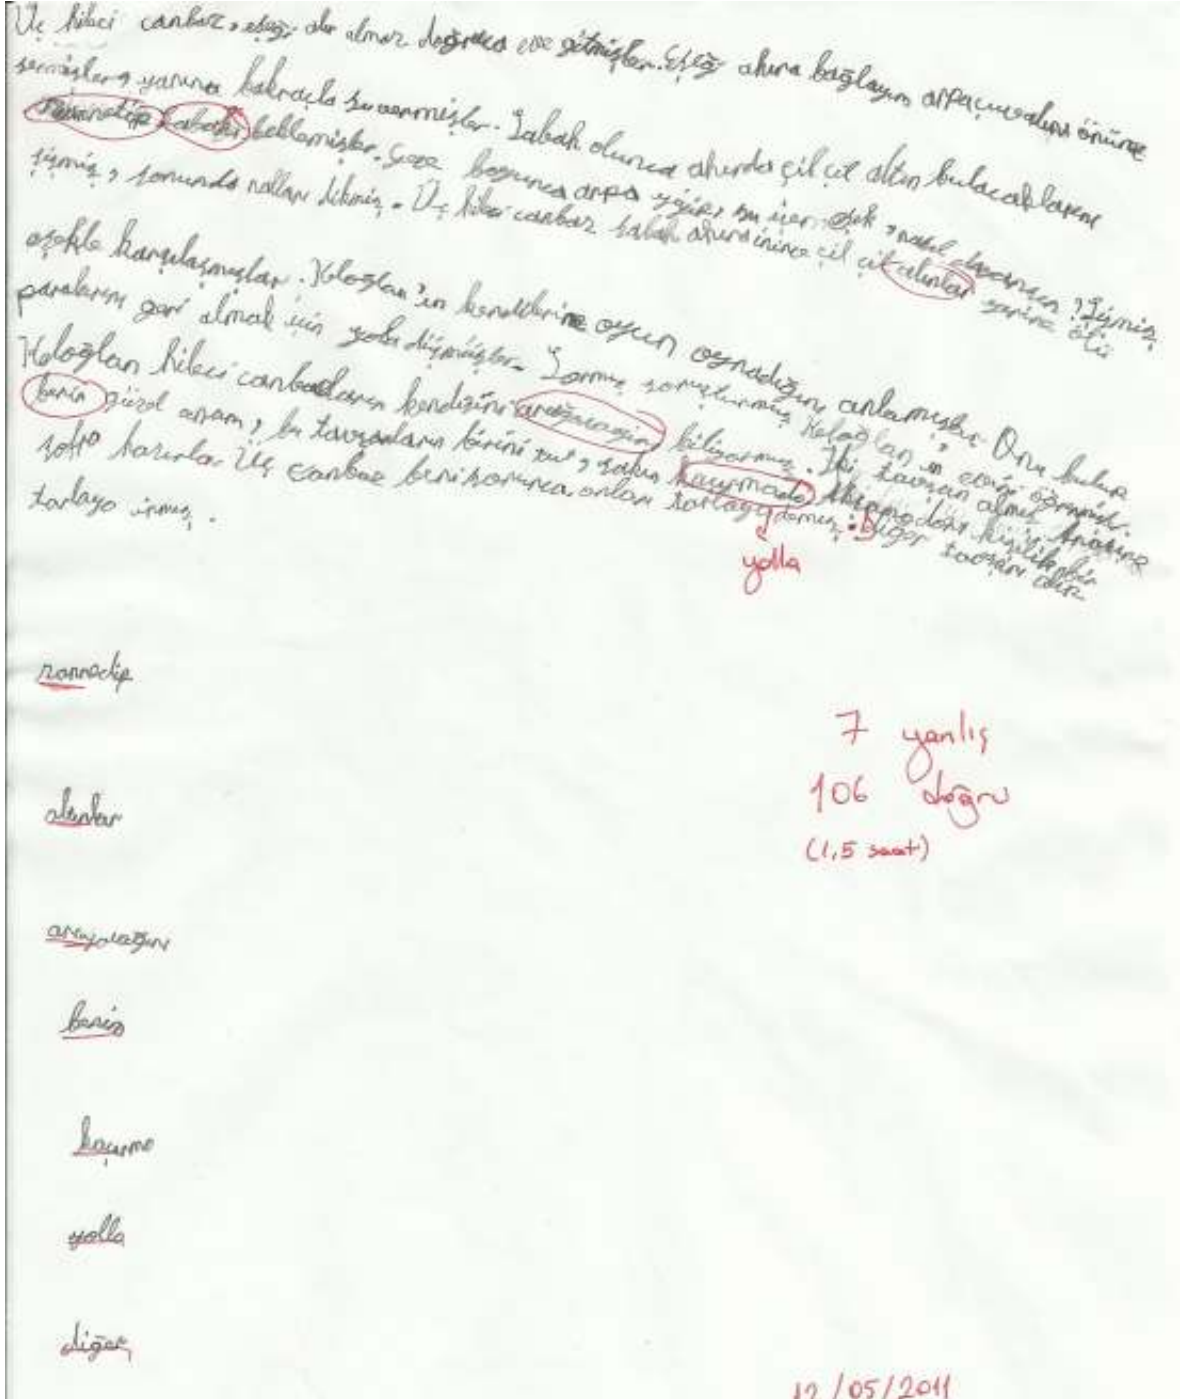 Üç hileci canbaz, eşeği alır almaz doğruca eve gitmişler. Eşeği ahıra bağlayın önüne
yanına bakraçla su vermişler. Sabah olunca ahırda çil çil altın bulacaklarını
sabahı beklemişler. Gece boyunca arpa yiyip, su içen eşek, nasıl dayansın? Şişmiş,
şişmiş, sonunda nalları dikmiş. Üç hileci canbaz sabah ahıra inince çil çil alınlar yerine ölü
eşekle karşılaşmışlar. Keloğlan'ın kendilerine oyun oynadığını anlamışlar. Onu bulup
paralarını geri almak için yola düşmüşler. Sormuş soruşturmuş, Keloğlan'ın evini öğrenmişler.
Keloğlan hileci canbazların kendisini biliyormuş. İki tavşan almış. Anasına
benin güzel anam, bu tavşanların birini sakın kişilik bir
sofra hazırla. Üç canbaz beni sorunca, onları tarlaya demiş. diğer tavşanı alıp
tarlaya inmiş.
yolla
zannedip
7 yanlış
106 doğru
(1,5 saat)
altınlar
arayacağını
benim
kaçırma
yolla
diğer
12/05/2011